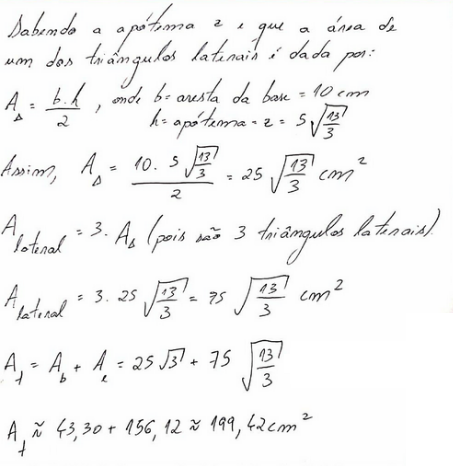 Sabendo a apótema z e que a área de
um dos triângulos laterais é dada por:
A_Δ = b.h/2, onde b = aresta da base = 10 cm
h = apótema = z = 5√(13/3)
Assim, A_Δ = 10. 5√(13/3)/2 = 25√(13/3) cm²
A_lateral = 3. A_Δ (pois são 3 triângulos laterais).
A_lateral = 3. 25√(13/3) = 75√(13/3) cm²
A_t = A_b + A_l = 25√3 + 75√(13/3)
A_t ≈ 43,30 + 156,12 ≈ 199,42 cm²